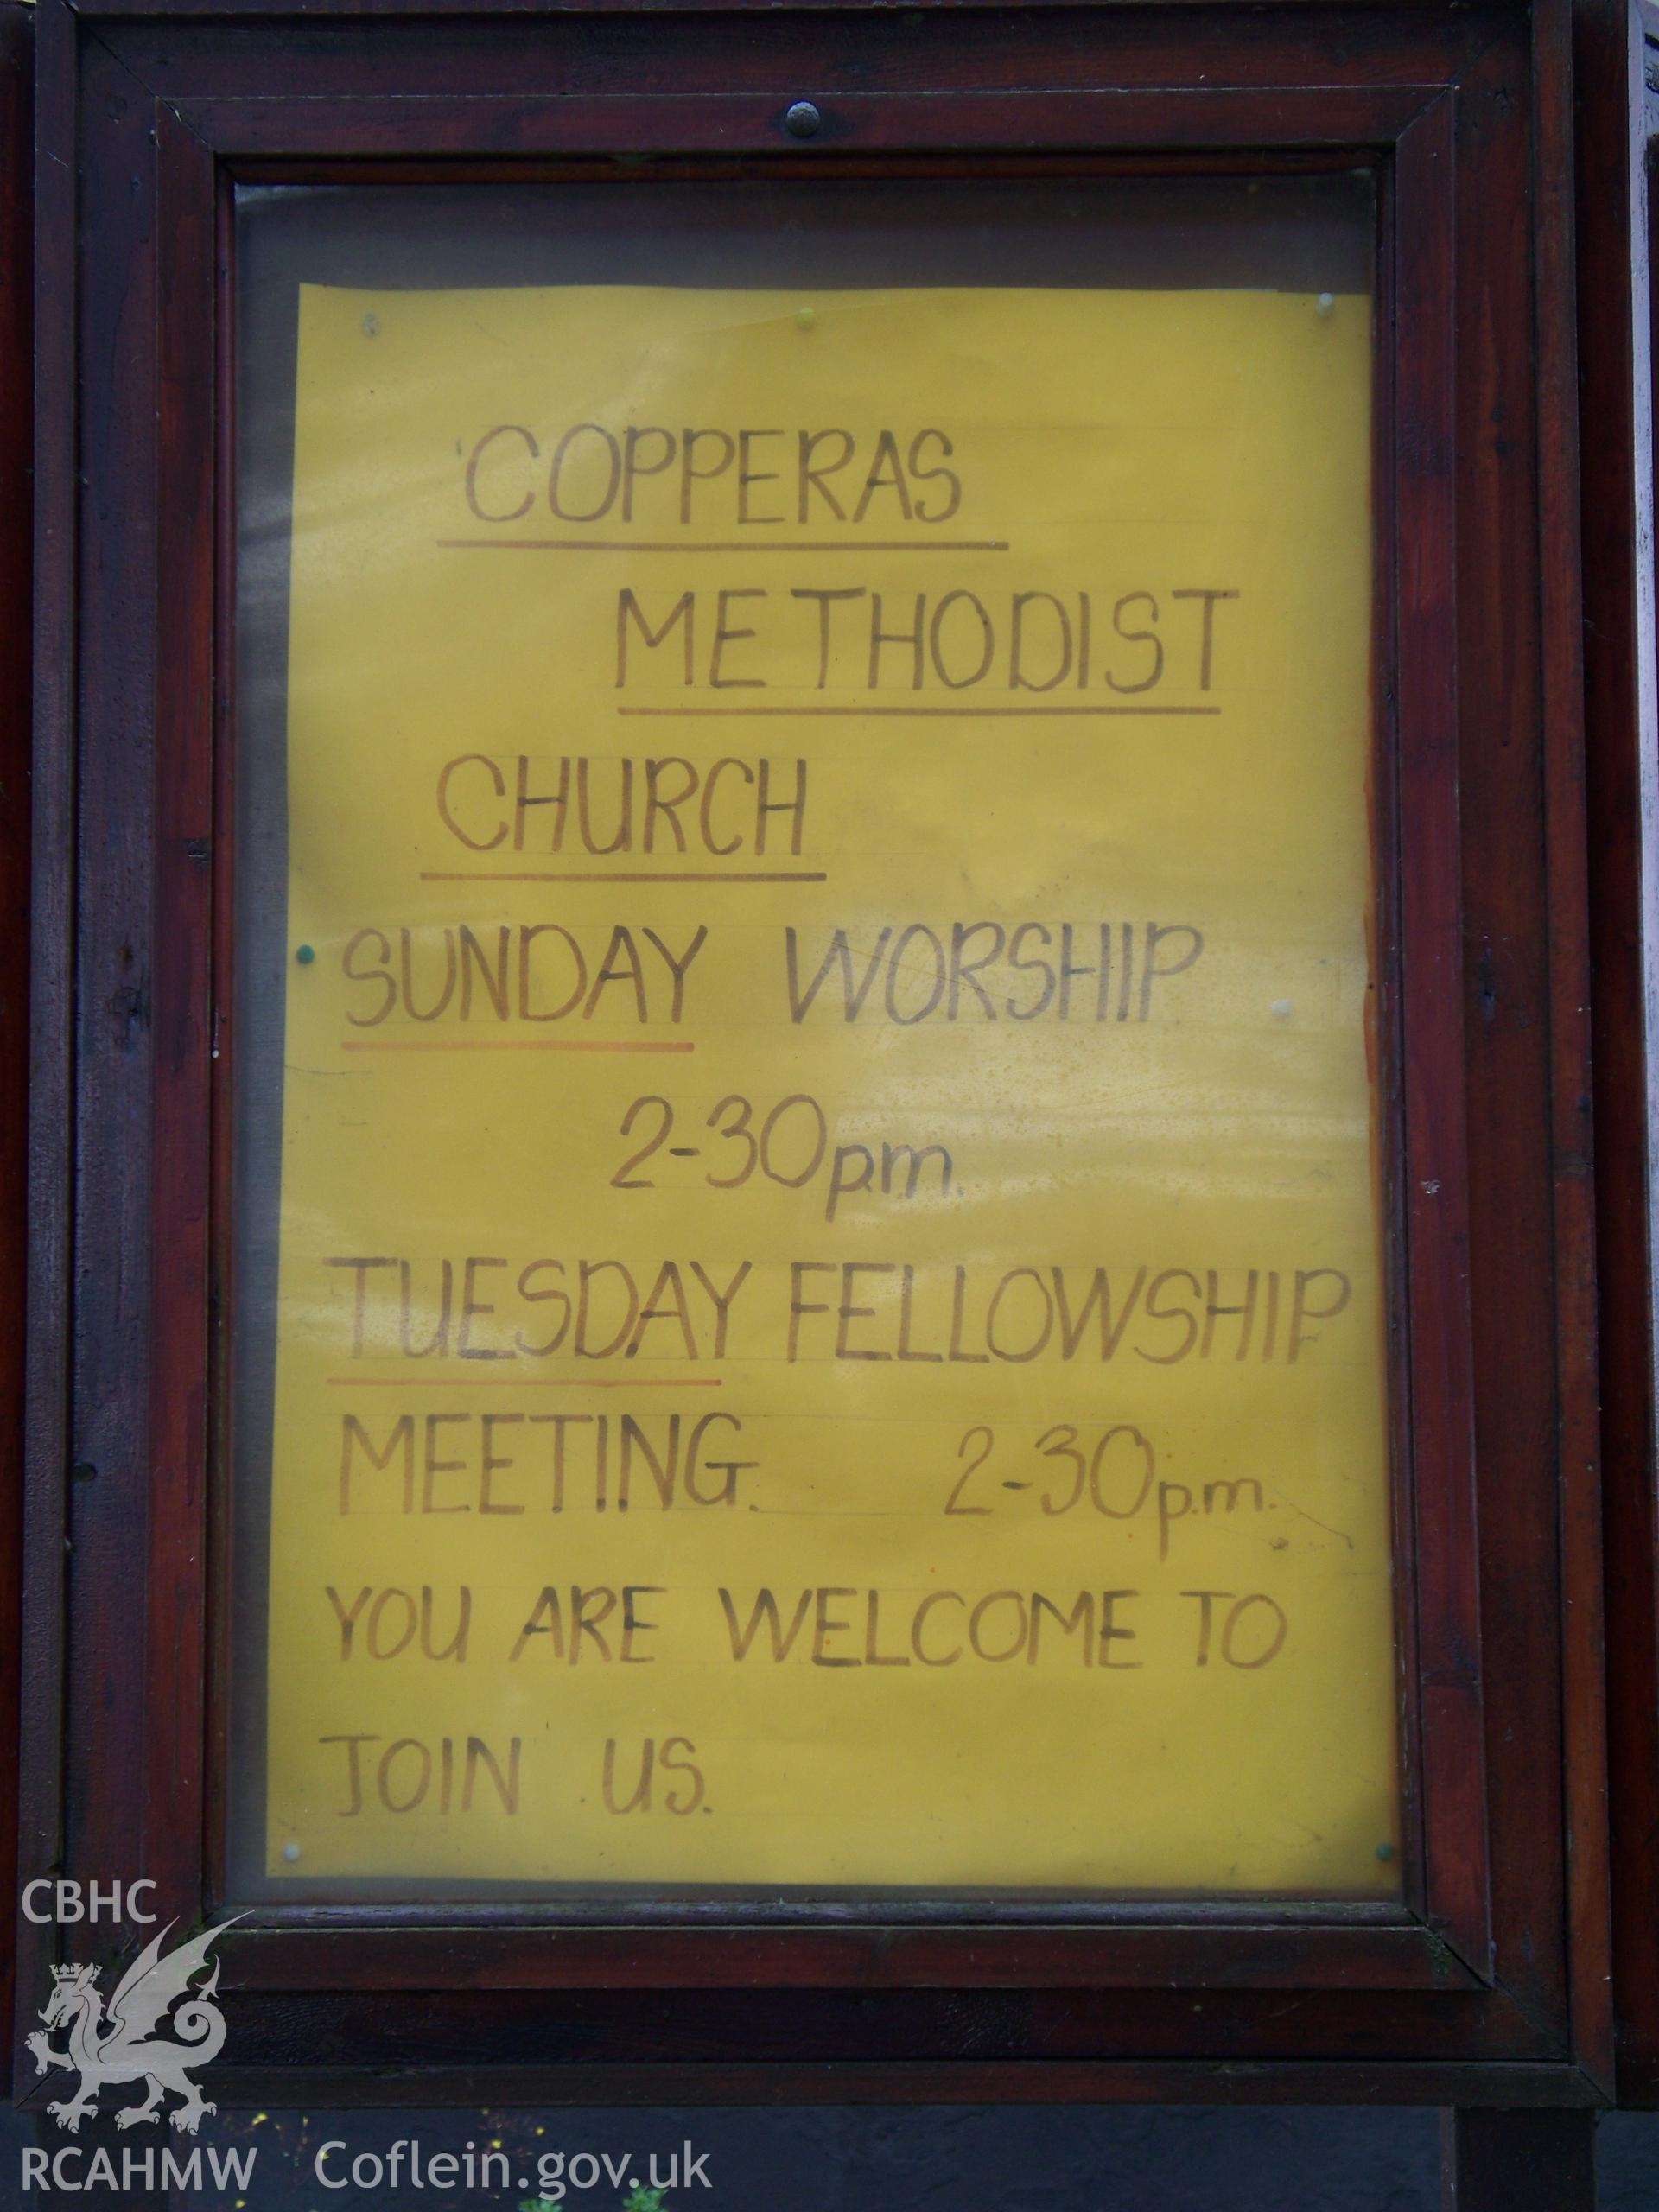 COPPERAS
METHODIST
CHURCH
SUNDAY WORSHIP
2-30pm.
TUESDAY FELLOWSHIP
MEETING. 2-30p.m.
YOU ARE WELCOME TO
JOIN US.
CBHC
RCAHMW Coflein.gov.uk